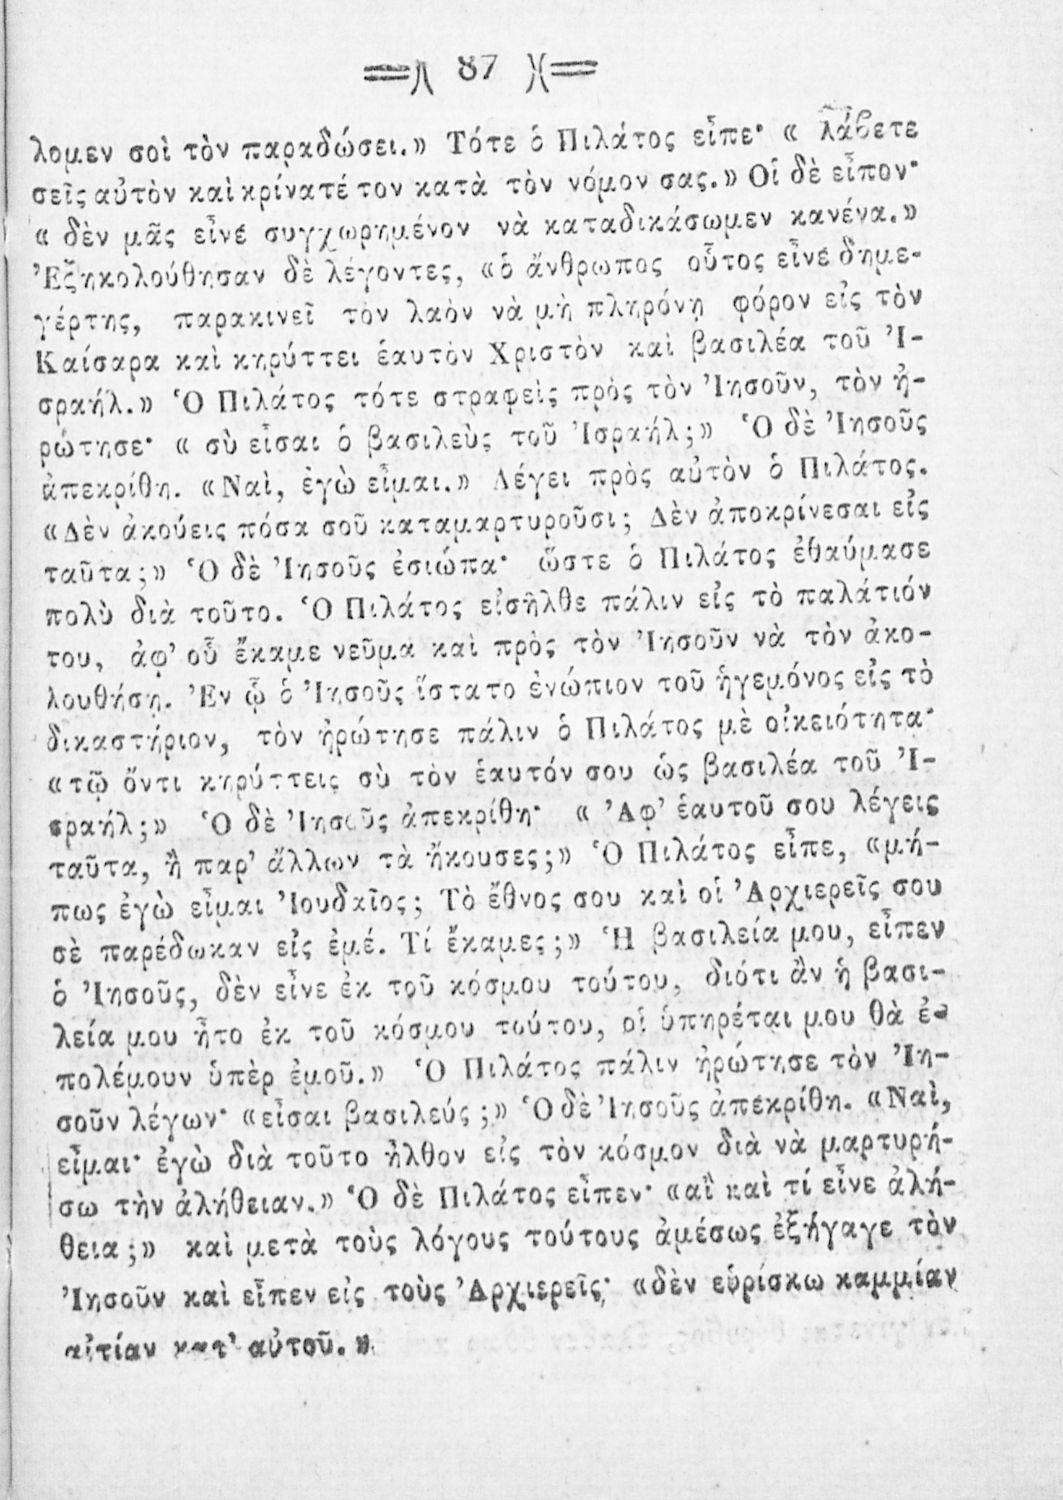 87
λομεν σοὶ τὸν παραδώσει.» Τότε ὁ Πιλάτος εἶπε· « λάβετε
σεῖς αὐτὸν καὶ κρίνατέ τον κατὰ τὸν νόμον σας.» Οἱ δὲ εἶπον·
« δὲν μᾶς εἶνε συγχωρημένον νὰ καταδικάσωμεν κανένα.»
Ἐξηκολούθησαν δὲ λέγοντες, «ὁ ἄνθρωπος οὗτος εἶνε δημε-
γέρτης, παρακινεῖ τὸν λαὸν νὰ μὴ πληρόνῃ φόρον εἰς τὸν
Καίσαρα καὶ κηρύττει ἑαυτὸν Χριστὸν καὶ βασιλέα τοῦ Ἰ-
σραήλ.» Ὁ Πιλάτος τότε στραφεὶς πρὸς τὸν Ἰησοῦν, τὸν ἠ-
ρώτησε· « σὺ εἶσαι ὁ βασιλεὺς τοῦ Ἰσραήλ;» Ὁ δὲ Ἰησοῦς
ἀπεκρίθη. «Ναὶ, ἐγὼ εἶμαι.» Λέγει πρὸς αὐτὸν ὁ Πιλάτος.
«Δὲν ἀκούεις πόσα σοῦ καταμαρτυροῦσι; Δὲν ἀποκρίνεσαι εἰς
ταῦτα;» Ὁ δὲ Ἰησοῦς ἐσιώπα· ὥστε ὁ Πιλάτος ἐθαύμασε
πολὺ διὰ τοῦτο. Ὁ Πιλάτος εἰσῆλθε πάλιν εἰς τὸ παλάτιόν
του, ἀφ' οὗ ἔκαμε νεῦμα καὶ πρὸς τὸν Ἰησοῦν νὰ τὸν ἀκο-
λουθήσῃ. Ἐν ᾧ ὁ Ἰησοῦς ἵστατο ἐνώπιον τοῦ ἡγεμόνος εἰς τὸ
δικαστήριον, τὸν ἠρώτησε πάλιν ὁ Πιλάτος μὲ οἰκειότητα·
«τῷ ὄντι κηρύττεις σὺ τὸν ἑαυτόν σου ὡς βασιλέα τοῦ Ἰ-
σραήλ;» Ὁ δὲ Ἰησοῦς ἀπεκρίθη· « Ἀφ' ἑαυτοῦ σου λέγεις
ταῦτα, ἢ παρ' ἄλλων τὰ ἤκουσες;» Ὁ Πιλάτος εἶπε, «μή-
πως ἐγὼ εἶμαι Ἰουδαῖος; Τὸ ἔθνος σου καὶ οἱ Ἀρχιερεῖς σου
σὲ παρέδωκαν εἰς ἐμέ. Τί ἔκαμες;» Ἡ βασιλεία μου, εἶπεν
ὁ Ἰησοῦς, δὲν εἶνε ἐκ τοῦ κόσμου τούτου, διότι ἂν ἡ βασι-
λεία μου ἦτο ἐκ τοῦ κόσμου τούτου, οἱ ὑπηρέται μου θὰ ἐ-
πολέμουν ὑπὲρ ἐμοῦ.» Ὁ Πιλάτος πάλιν ἠρώτησε τὸν Ἰη-
σοῦν λέγων· «εἶσαι βασιλεύς;» Ὁ δὲ Ἰησοῦς ἀπεκρίθη. «Ναὶ,
εἶμαι· ἐγὼ διὰ τοῦτο ἦλθον εἰς τὸν κόσμον διὰ νὰ μαρτυρή-
σω τὴν ἀλήθειαν.» Ὁ δὲ Πιλάτος εἶπεν· «αἲ καὶ τί εἶνε ἀλή-
θεια;» καὶ μετὰ τοὺς λόγους τούτους ἀμέσως ἐξήγαγε τὸν
Ἰησοῦν καὶ εἶπεν εἰς τοὺς Ἀρχιερεῖς· «δὲν εὑρίσκω καμμίαν
αἰτίαν κατ' αὐτοῦ.»